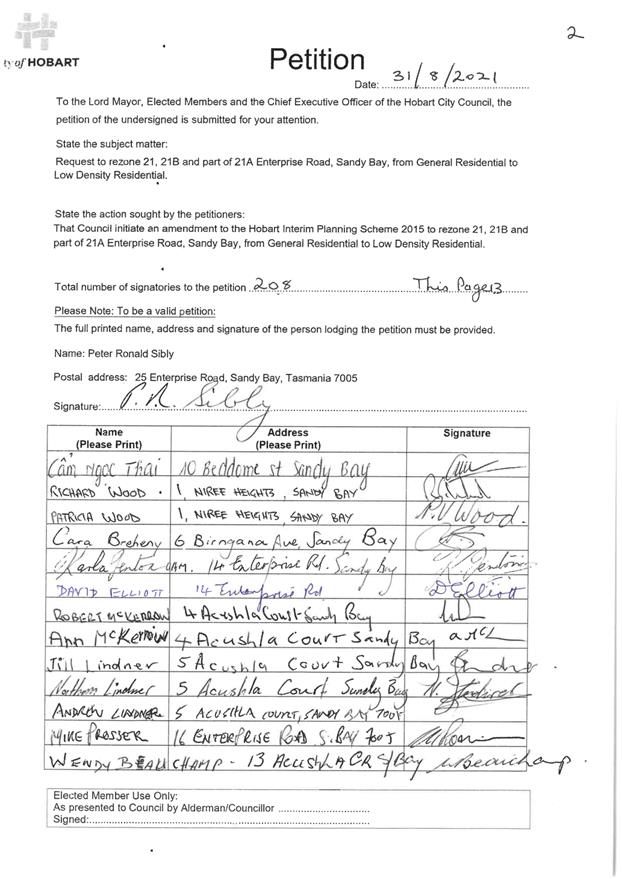 2
ty of HOBART
Petition
Date: 31/8/2021
To the Lord Mayor, Elected Members and the Chief Executive Officer of the Hobart City Council, the
petition of the undersigned is submitted for your attention.
State the subject matter:
Request to rezone 21, 21B and part of 21A Enterprise Road, Sandy Bay, from General Residential to
Low Density Residential.
State the action sought by the petitioners:
That Council initiate an amendment to the Hobart Interim Planning Scheme 2015 to rezone 21, 21B and
part of 21A Enterprise Road, Sandy Bay, from General Residential to Low Density Residential.
Total number of signatories to the petition 208 This Page 13
Please Note: To be a valid petition:
The full printed name, address and signature of the person lodging the petition must be provided.
Name: Peter Ronald Sibly
Postal address: 25 Enterprise Road, Sandy Bay, Tasmania 7005
Signature: P. R. Sibly
Name Address Signature
(Please Print) (Please Print)
Cẩm Ngọc Thai 10 Beddome st Sandy Bay
RICHARD WOOD 1, NIREE HEIGHTS, SANDY BAY
PATRICIA WOOD 1, NIREE HEIGHTS, SANDY BAY P.V Wood.
Cara Breheny 6 Birngana Ave, Sandy Bay
Karla Fenton OAM. 14 Enterprise Rd. Sandy Bay K. Fenton
DAVID ELLIOTT 14 Enterprise Rd D Elliott
ROBERT MCKERROW 4 Acushla Court Sandy Bay
Ann McKerrow 4 Acushla Court Sandy Bay
Jill Lindner 5 Acushla Court Sandy Bay
Lindner 5 Acushla Court Sandy Bay
ANDREW LINDNER 5 ACUSHLA COURT, SANDY BAY 7005
MIKE PROSSER 16 ENTERPRISE ROAD S. BAY 7005
WENDY BEAUCHAMP - 13 ACUSHLA CR S/Bay WBeauchamp
Elected Member Use Only:
As presented to Council by Alderman/Councillor
Signed: